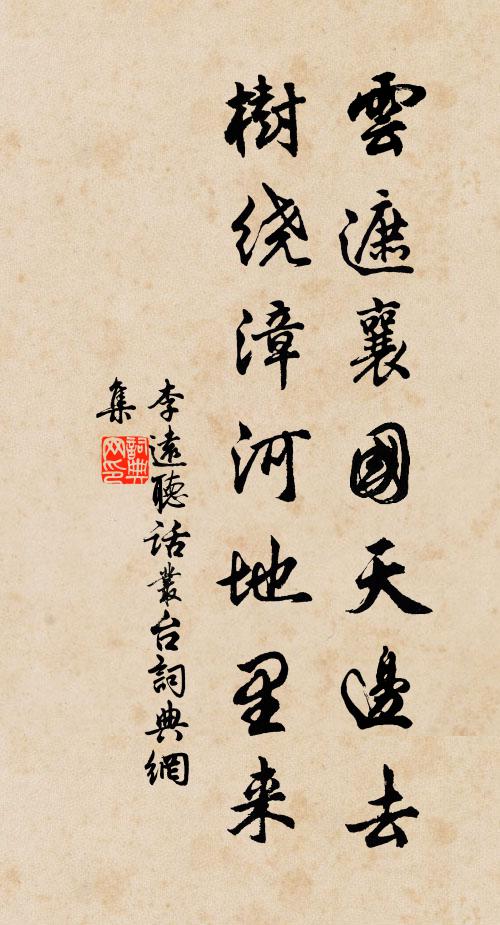 雲遮襄國天邊去
樹绕漳河地里来
李遠聽話叢台詞典網
集
詞典网印